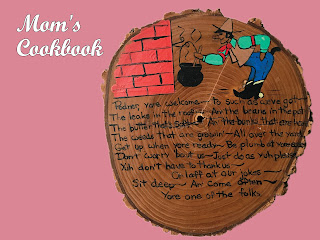 Mom's
Cookbook
yore welcome - To such as we've got
The leaks in the - An' the beans in the pot
The butter that's - An' the bunks that
The weeds that are growin' - All over the yard
Get up when yore ready - Be plumb at yore ease
Don't worry bout us - Just do as yuh please
Yuh don't have to thank us -
Or laff at our jokes -
Sit deep - An' come often -
Yore one of the folks.